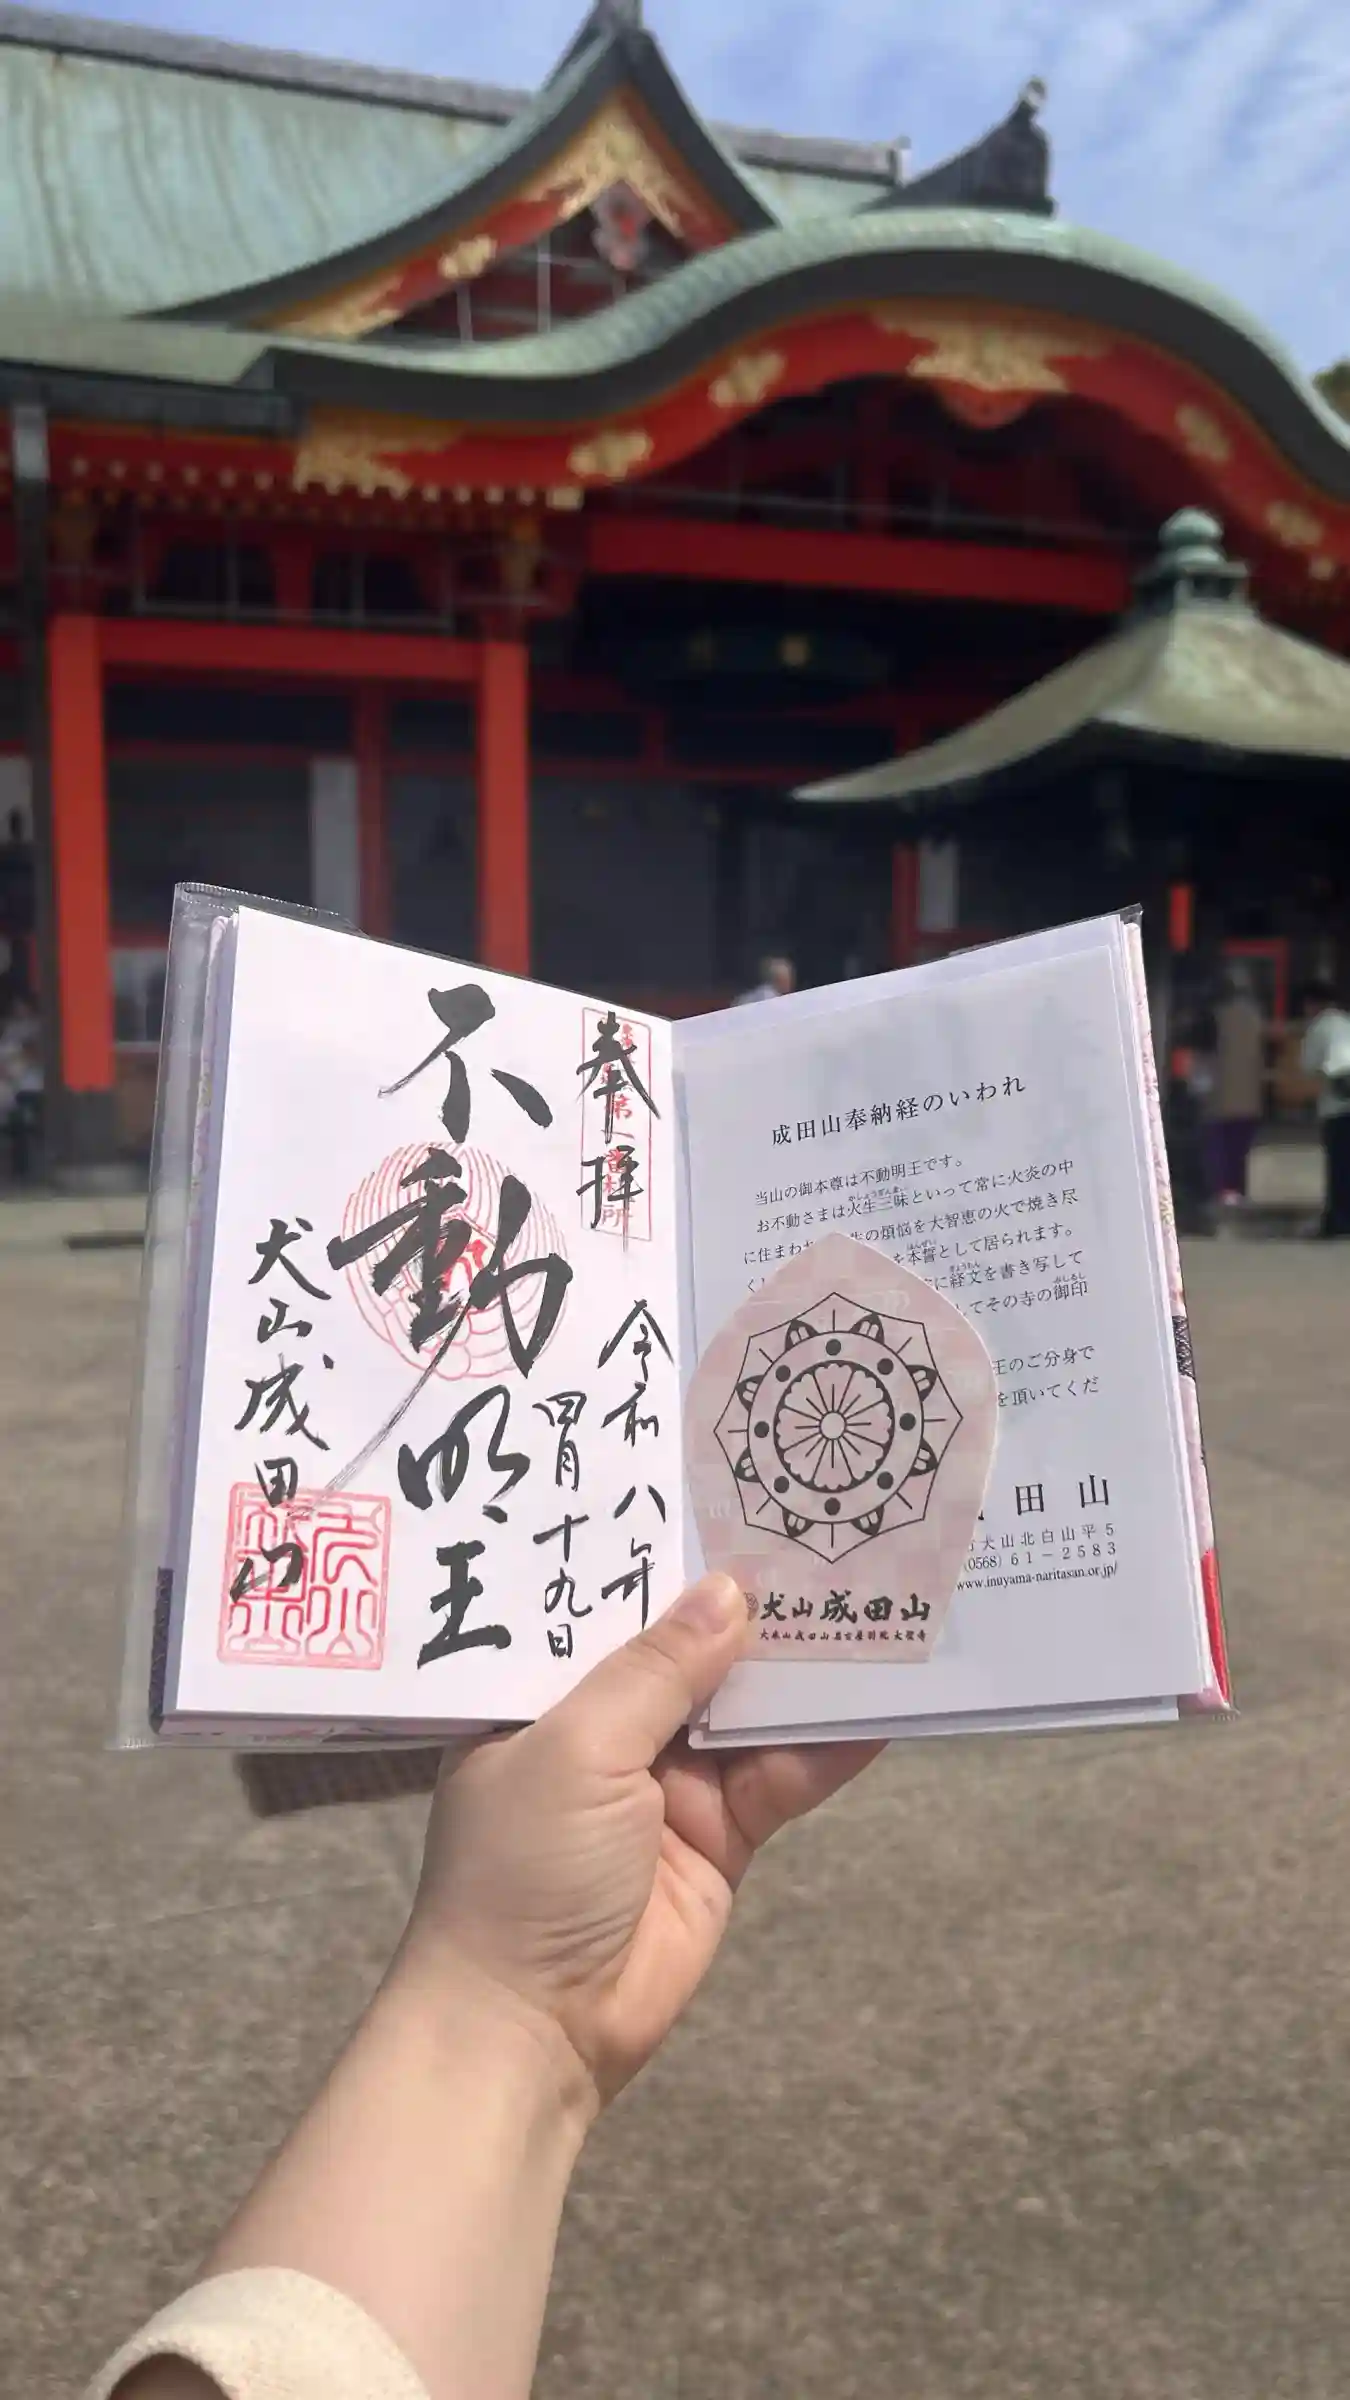 奉拝
令和八年
四月十九日
不動明王
犬山成田山
成田山奉納経のいわれ
当山の御本尊は不動明王です。
お不動さまは火生三昧といって常に火炎の中
に住まわれ
の煩悩を大智恵の火で焼き尽
く
を本誓として居られます。
に経文を書き写して
してその寺の御印
王のご分身で
を頂いてくだ
田山
犬山北白山平5
(0568)61-2583
www.inuyama-naritasan.or.jp/
犬山成田山